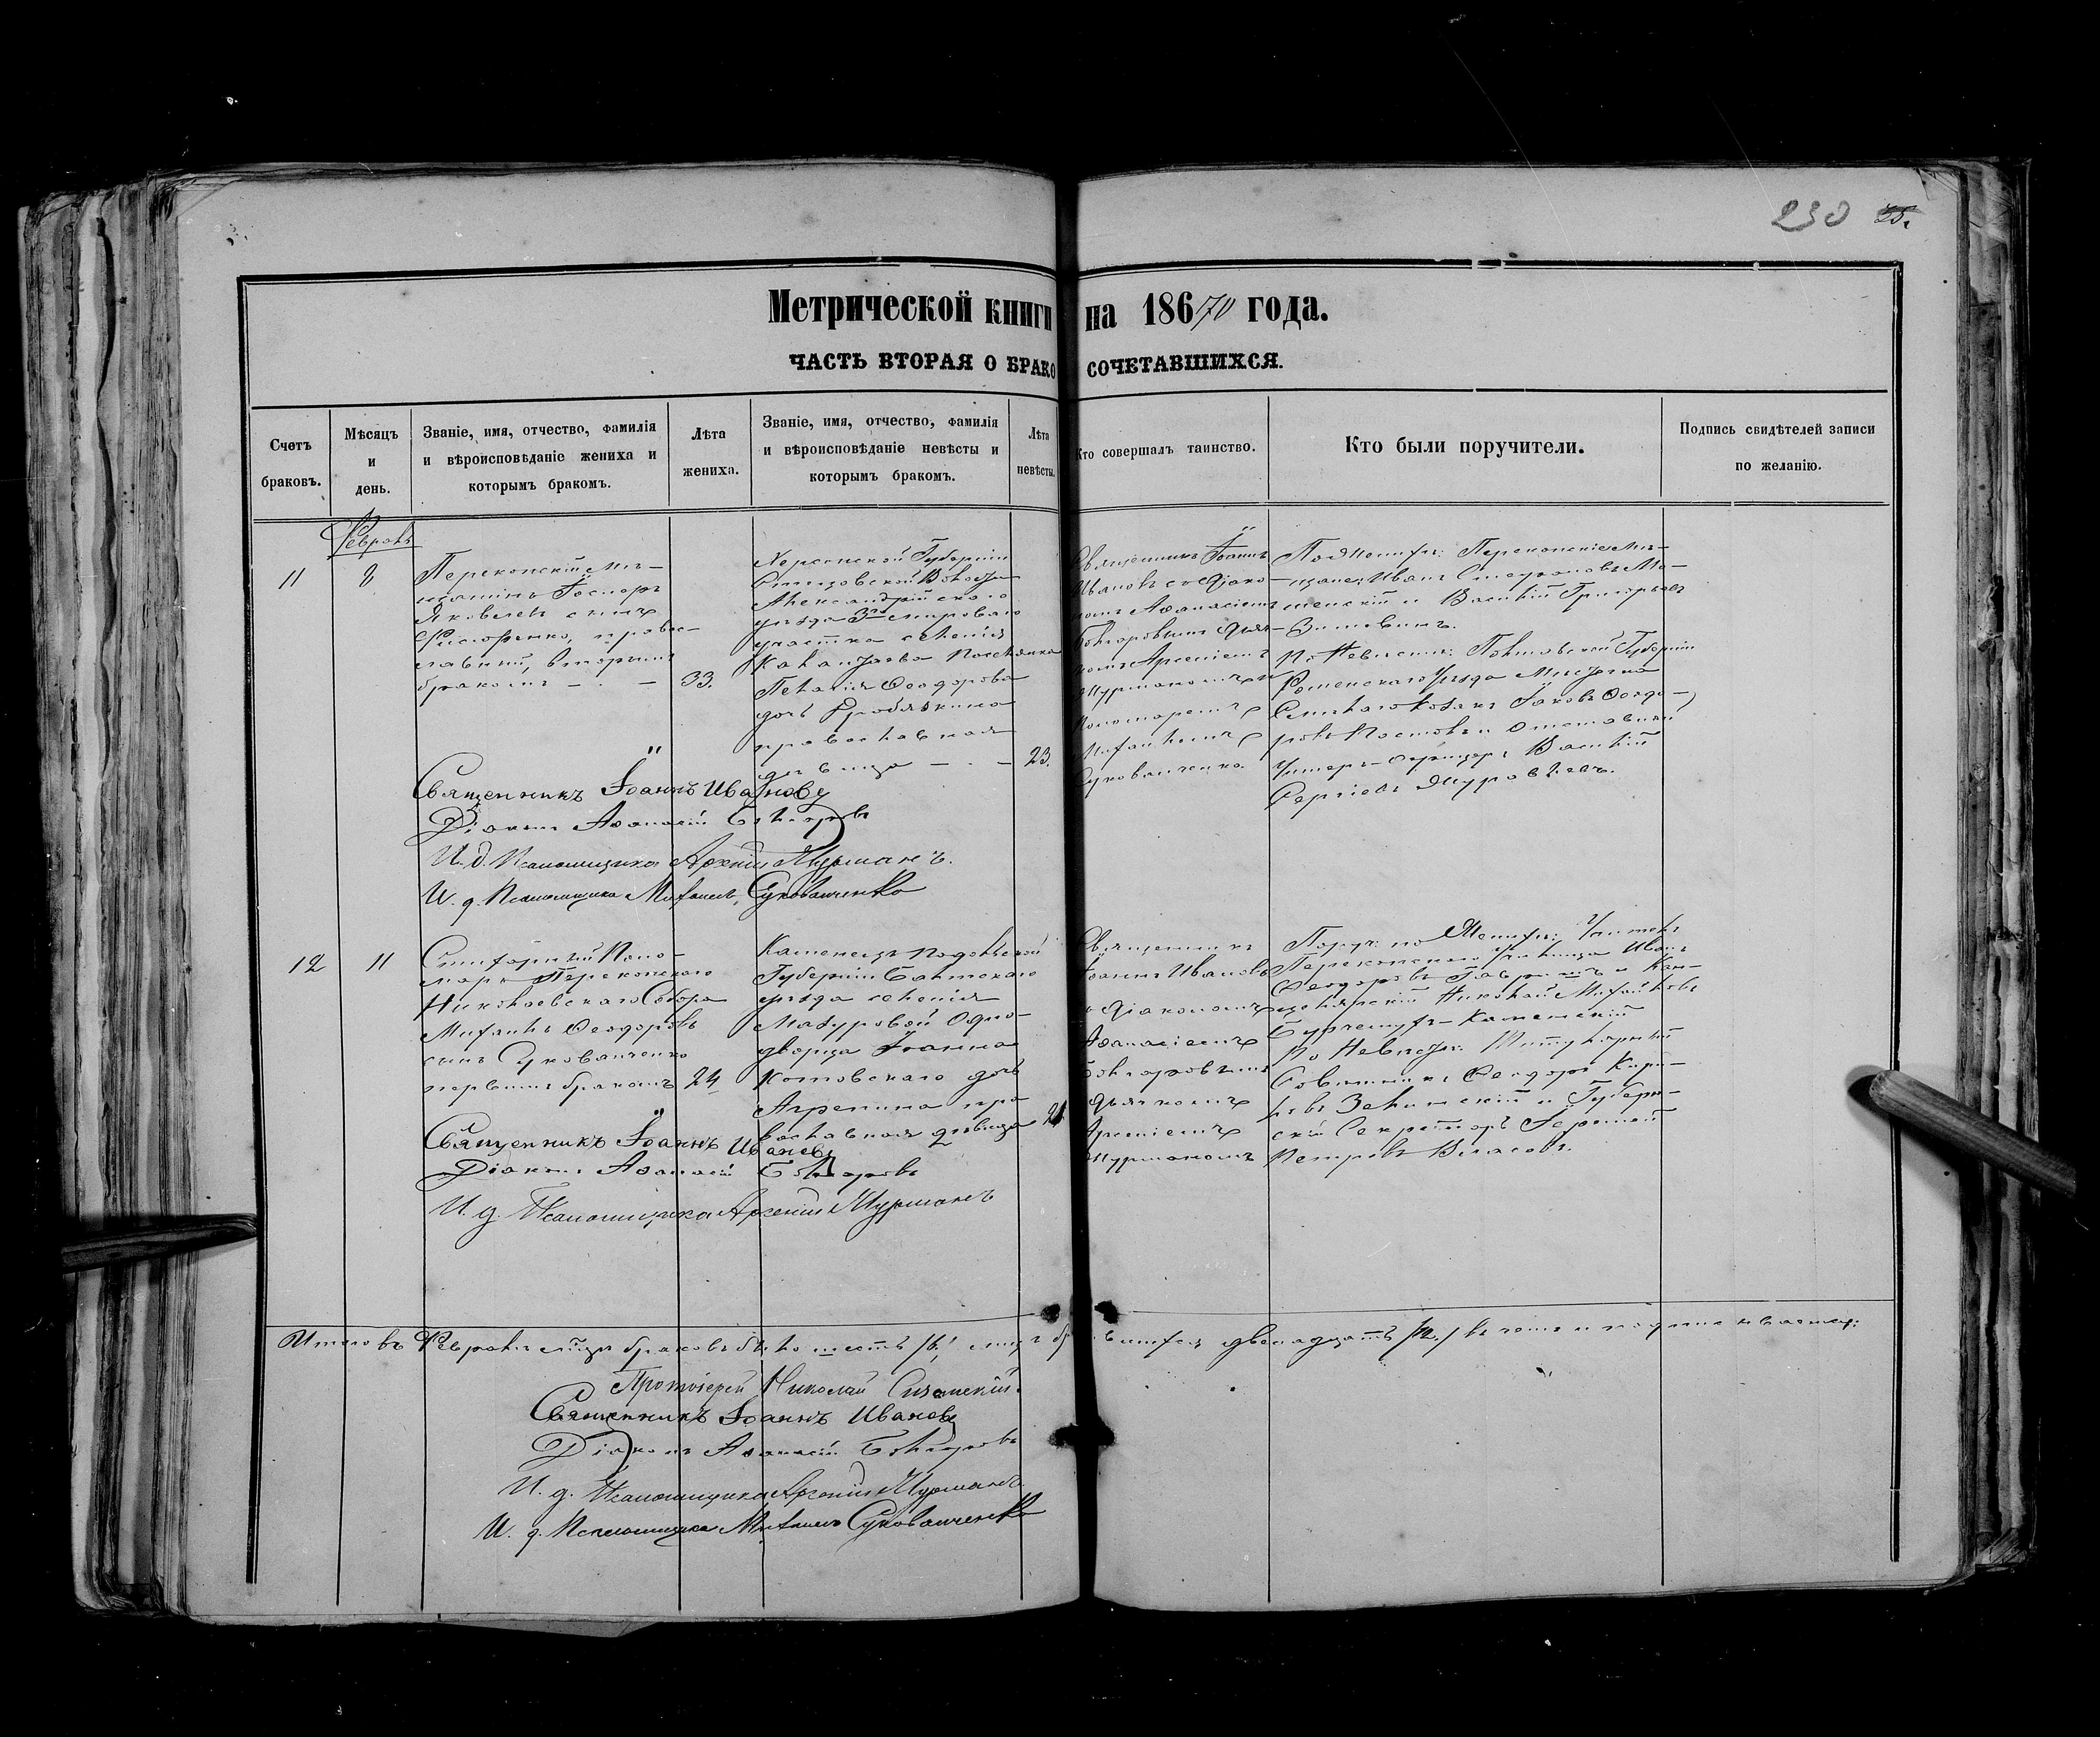 230 25.
Метрической книги на 18670 года.
ЧАСТЬ ВТОРАЯ О БРАКОСОЧЕТАВШИХСЯ.
Счетъ браковъ.
Мѣсяцъ и день.
Званіе, имя, отчество, фамилія
и вѣроисповѣданіе жениха и
которымъ бракомъ.
Лѣта жениха.
Званіе, имя, отчество, фамилія
и вѣроисповѣданіе невѣсты и
которымъ бракомъ.
Лѣта невѣсты.
Кто совершалъ таинство.
Кто были поручители.
Подпись свидѣтелей записи
по желанію.
Февраль
11
8
Перекопскій Мѣ-
щанинъ
Яковлевъ сынъ
правос-
лавный, вторымъ
бракомъ — . — 33.
Херсонской Губерніи
Волости
Александрійского
уѣзда 3го мироваго
участка селенія
Поселянка
Пелагія Феодорова
дочь
православная
дѣвица — . — 23.
Священникъ Іоаннъ
Ивановъ съ Діако-
номъ Афанасіемъ
Болгаровымъ Дьяч-
комъ Арсеніемъ
Мурманомъ и
Пономаремъ
Михаиломъ
Суковатченко.
По Женихѣ: Перекопскіе Мѣ-
щане: Иванъ
и Василій Григорьевъ
По Невѣстѣ: Полтавской Губерніи
Роменскаго Уѣзда Мѣстечка
Козакъ Іаковъ Феодо-
ровъ и Отставной
Унтеръ-Офицеръ Василій
Сергіевъ
Священникъ Іоаннъ Ивановъ
Діаконъ Афанасій Болгаровъ
И. д. Псаломщика Арсеній Мурманъ.
И. д. Псаломщика Михаилъ Суковатченко
12
11
Стихарный Поно-
марь Перекопского
Николаевскаго Собора
Михаилъ Феодоровъ
сынъ Суковатченко
первымъ бракомъ 24
Каменецъ Подольской
Губерніи Балтскаго
уѣзда селенія
Мазуровой Одно-
дворца Іоанна
Котовскаго дочь
Агрепина пра
вославная дѣвица 21
Священникъ
Іоаннъ Ивановъ
съ Діакономъ
Афанасіемъ
Болгаровымъ
Дьячкомъ
Арсеніемъ
Мурманомъ
Поруч: по Женихѣ: Учитель
Перекопского Училища Иванъ
Феодоровъ и Кан-
целярскій Николай Михайловъ
Каменскій
по Невѣстѣ: Титулярный
Совѣтникъ Феодоръ Кири-
ловъ Зелинскій и Губерн-
скій Секретарь
Петровъ Власовъ.
Священникъ Іоаннъ Ивановъ
Діаконъ Афанасій Болгаровъ
И. д. Псаломщика Арсеній Мурманъ
Итого въ Февралѣ мѣсяцѣ браковъ было шесть /6/ двенадцать /12./ въ чемъ и
Протоіерей Николай
Священникъ Іоаннъ Ивановъ
Діаконъ Афанасій Болгаровъ
И. д. Псаломщика Арсеній Мурманъ
И. д. Псаломщика Михаилъ Суковатченко